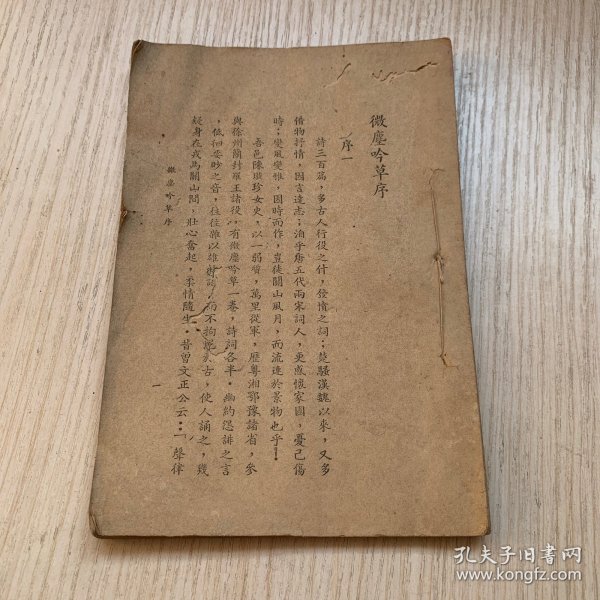 微塵吟草序
序一
詩三百篇，多古人行役之什，發憤之詞；楚騷漢魏以來，又多
借物抒情，因言達志；洎乎唐五代兩宋詞人，更感懷家國，憂己傷
時；變風變雅，因時而作，豈徒關山風月，而流連於景物也乎！
吾邑陳璇珍女史，以一弱質，萬里從軍，歷粵湘鄂豫諸省，參
與徐州蘭封羅王諸役，有微塵吟草一卷，詩詞各半。幽約怨誹之言
，低徊要眇之音，往往雜以雄
而不拘
古，使人誦之，幾
疑身在戎馬關山間，壯心奮起，柔情隨生。昔曾文正公云：「聲律
微塵吟草序
一
孔夫子旧书网
www.kongfz.com